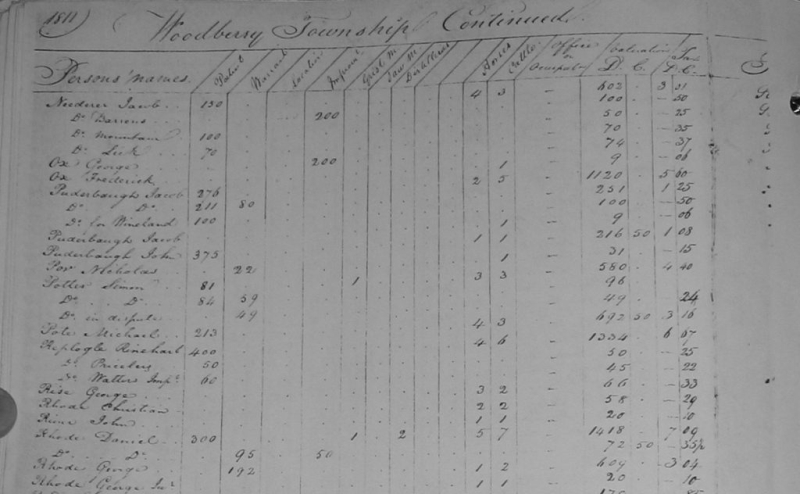 1811 Woodberry Township Continued.
Persons' names Patent Warrant Location Improvt Grist M Saw M Distilleries Acres Cattle Office or Occupation Valuation D. C. Tax D. C.
Neederer Jacob 150 4 3 - 602 . 3 01
Do Barrens 200 - 100 - 50
Do Mountain 100 - 50 - 25
Do Lick 70 - 70 - 35
Ox George 200 1 - 74 - 37
Ox Frederick - 9 - 06
Puderbaugh Jacob 276 2 5 - 1120 . 5 60
Do Do 211 80 - 251 . 1 25
Do for Wineland 100 - 100 - 50
Puderbaugh Jacob 1 - 9 - 06
Puderbaugh John 375 1 1 - 216 50 1 08
Por Nicholas 22 1 - 31 - 15
Potter Simon 81 1 3 3 - 580 . 4 40
Do Do 84 59 - 96
Do in dispute 49 - 49 - 24
Pote Michael 213 4 3 - 692 50 3 16
Replogle Rinehart 400 4 6 - 1334 . 6 67
Do 50 - 50 - 25
Do Walters Impt 60 - 45 - 22
Rise George 3 2 - 66 - 33
Rhode Christian 2 2 - 58 - 29
John 1 1 - 20 - 10
Rhode Daniel 300 1 2 5 7 - 1418 . 7 09
Do Do 95 50 - 72 50 -
Rhode George 192 1 2 - 609 . 3 04
Rhode George Junr 1 1 - 20 - 10